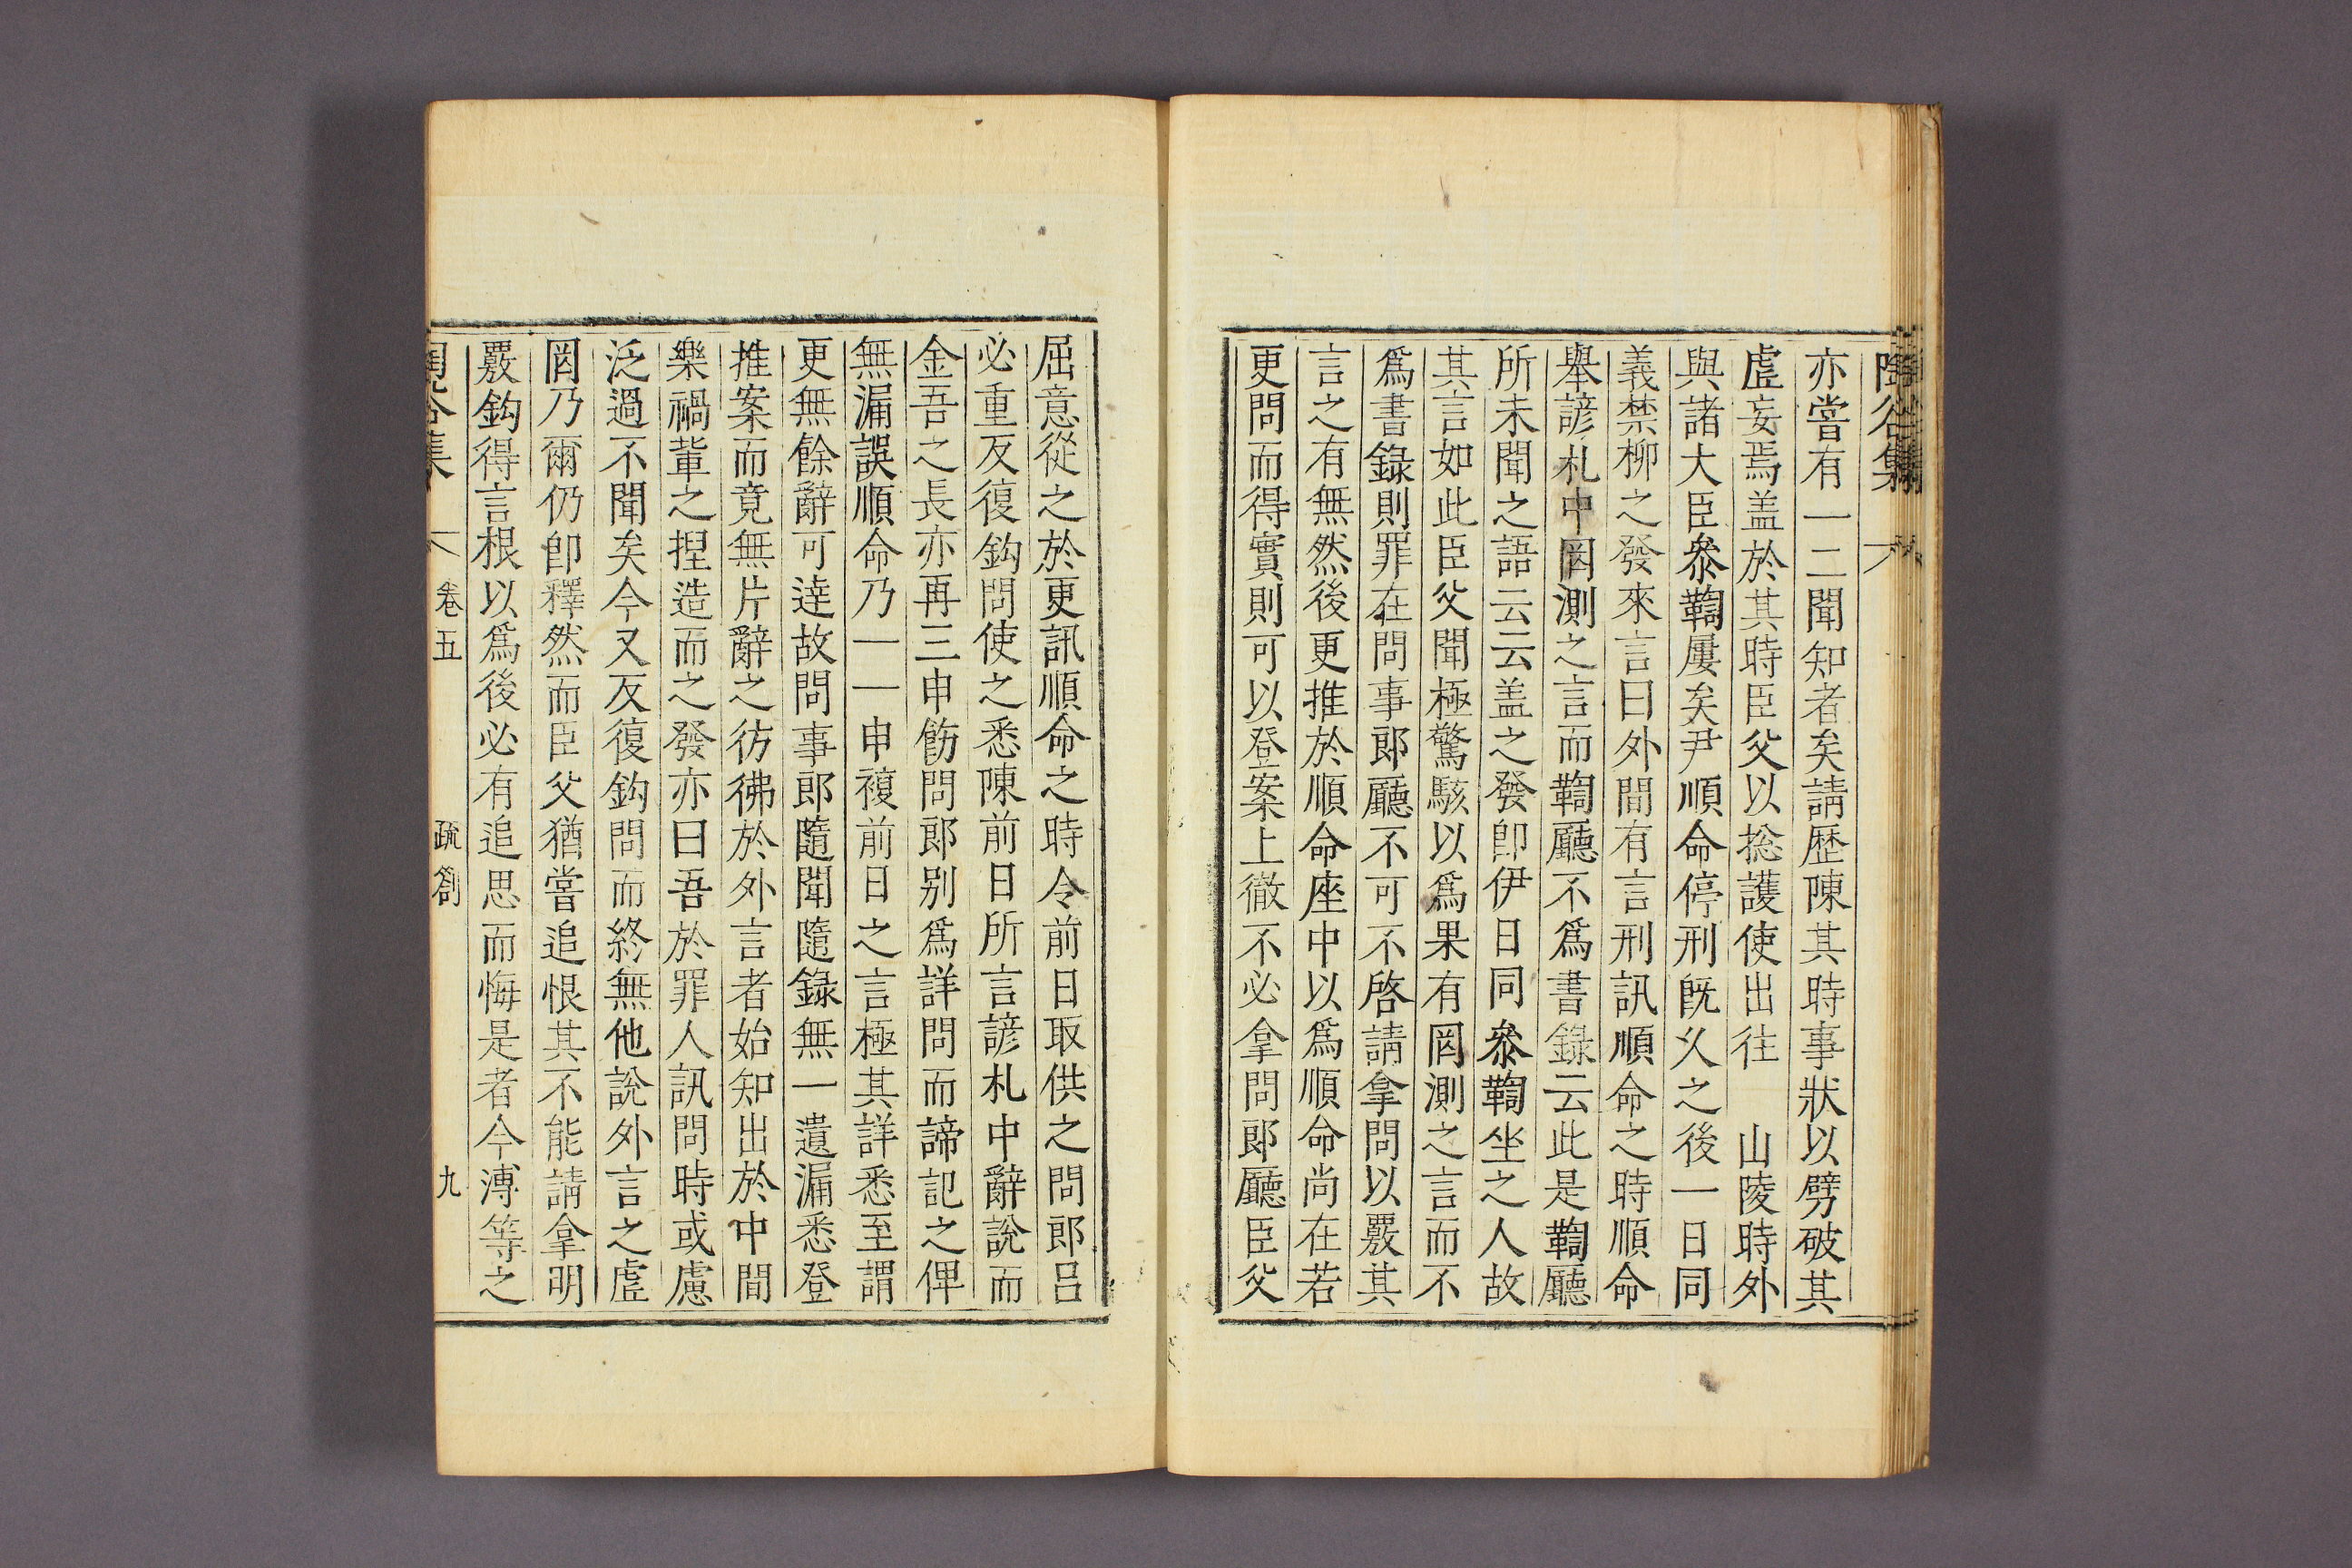 陶谷集
亦嘗有一二聞知者矣請歷陳其時事狀以劈破其
虛妄焉盖於其時臣父以摠護使出往　山陵時外
與諸大臣叅鞫屢矣尹順命停刑旣久之後一日同
義禁柳之發來言曰外間有言刑訊順命之時順命
舉諺札中罔測之言而鞫廳不爲書錄云此是鞫廳
所未聞之語云云盖之發卽伊日同叅鞫坐之人故
其言如此臣父聞極驚駭以爲果有罔測之言而不
爲書錄則罪在問事郎廳不可不啓請拿問以覈其
言之有無然後更推於順命座中以爲順命尚在若
更問而得實則可以登案上徹不必拿問郎廳臣父
屈意從之於更訊順命之時令前日取供之問郎吕
必重反復鈎問使之悉陳前日所言諺札中辭說而
金吾之長亦再三申飭問郎别爲詳問而諦記之俾
無漏誤順命乃一一申複前日之言極其詳悉至謂
更無餘辭可達故問事郎隨聞隨錄無一遺漏悉登
推案而竟無片辭之彷彿於外言者始知出於中間
樂禍輩之捏造而之發亦曰吾於罪人訊問時或慮
泛過不聞矣今又反復鈎問而終無他說外言之虛
罔乃爾仍卽釋然而臣父猶嘗追恨其不能請拿明
覈鈎得言根以爲後必有追思而悔是者今溥等之
卷五　疏箚　九